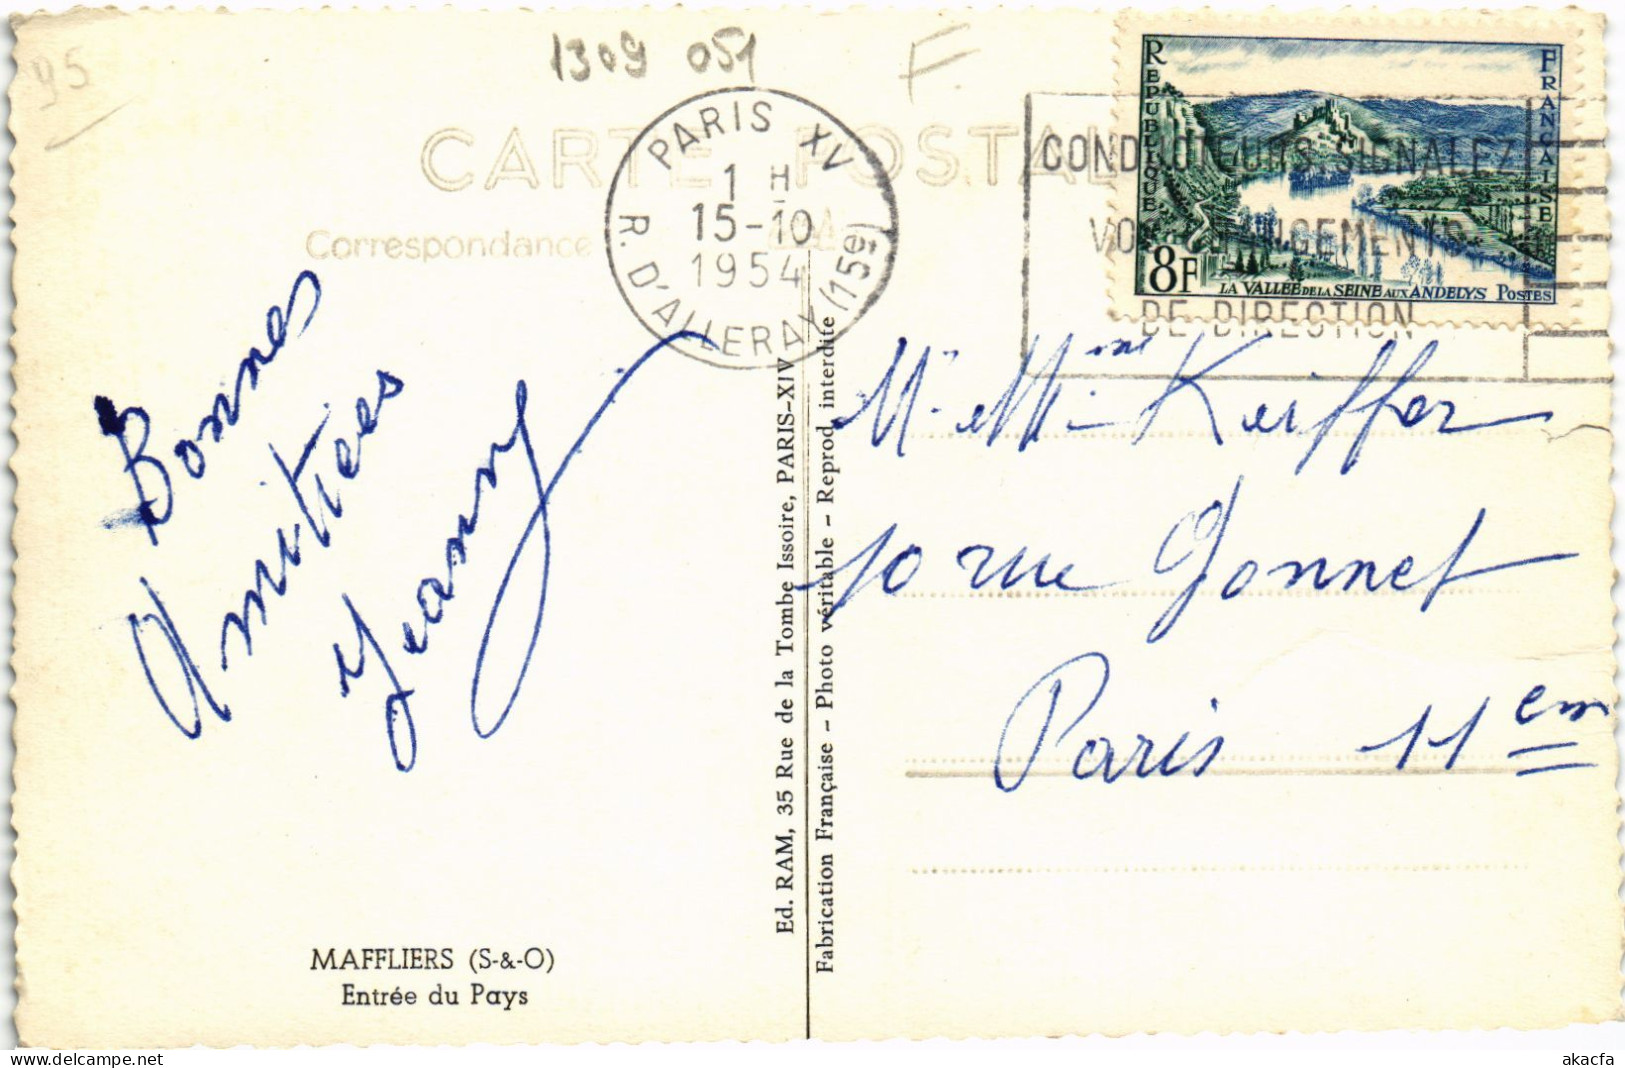 95
1309 051
F.
CARTE POSTALE
Correspondance
PARIS XV
1 H
15-10
1954
R. D'ALLERAY (15e)
CONDUCTEURS SIGNALEZ
VOS CHANGEMENTS
DE DIRECTION
REPUBLIQUE FRANÇAISE
8F
LA VALLÉE DE LA SEINE AUX ANDELYS POSTES
Bonnes
Amitiées
Jeanny
Mr et Mme Keiffer
10 rue Gonnet
Paris 11em
Ed. RAM, 35 Rue de la Tombe Issoire, PARIS-XIV
Fabrication Française - Photo véritable - Reprod. interdite
MAFFLIERS (S-&-O)
Entrée du Pays
delcampe.net
akacfa